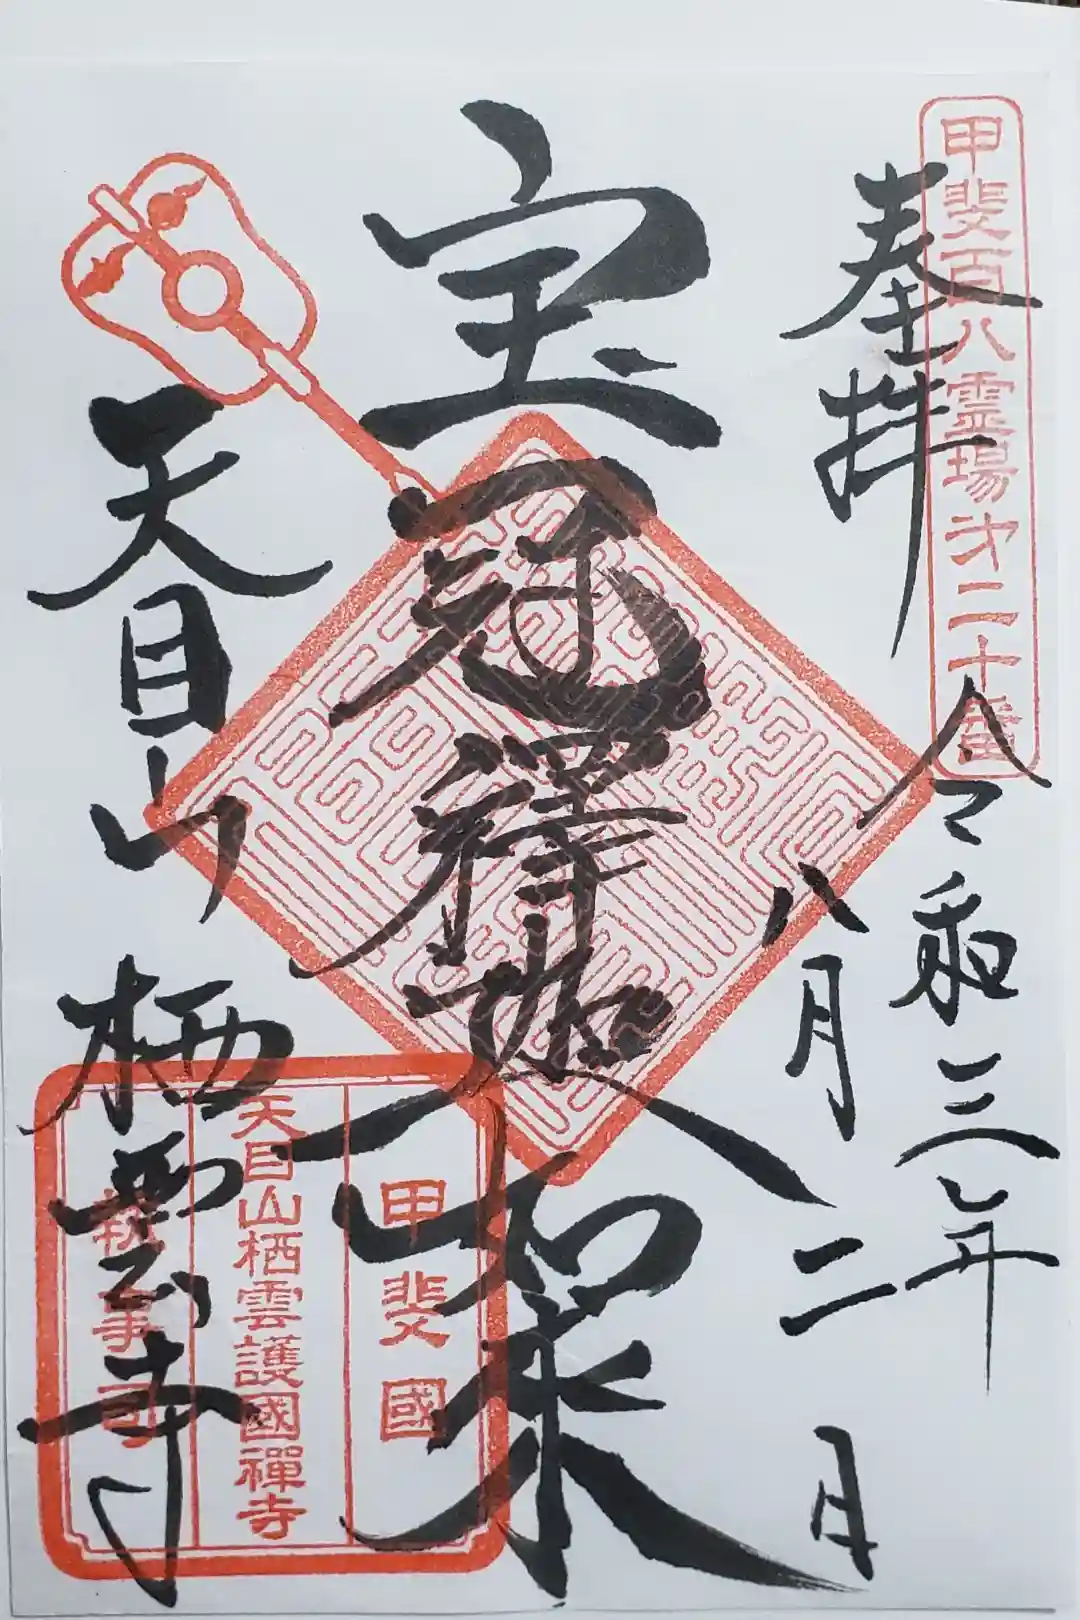 甲斐百八霊場第二十番
奉拝
令和三年
八月二日
宝冠釋迦如来
天目山栖雲寺
甲斐國
天目山栖雲護國禪寺